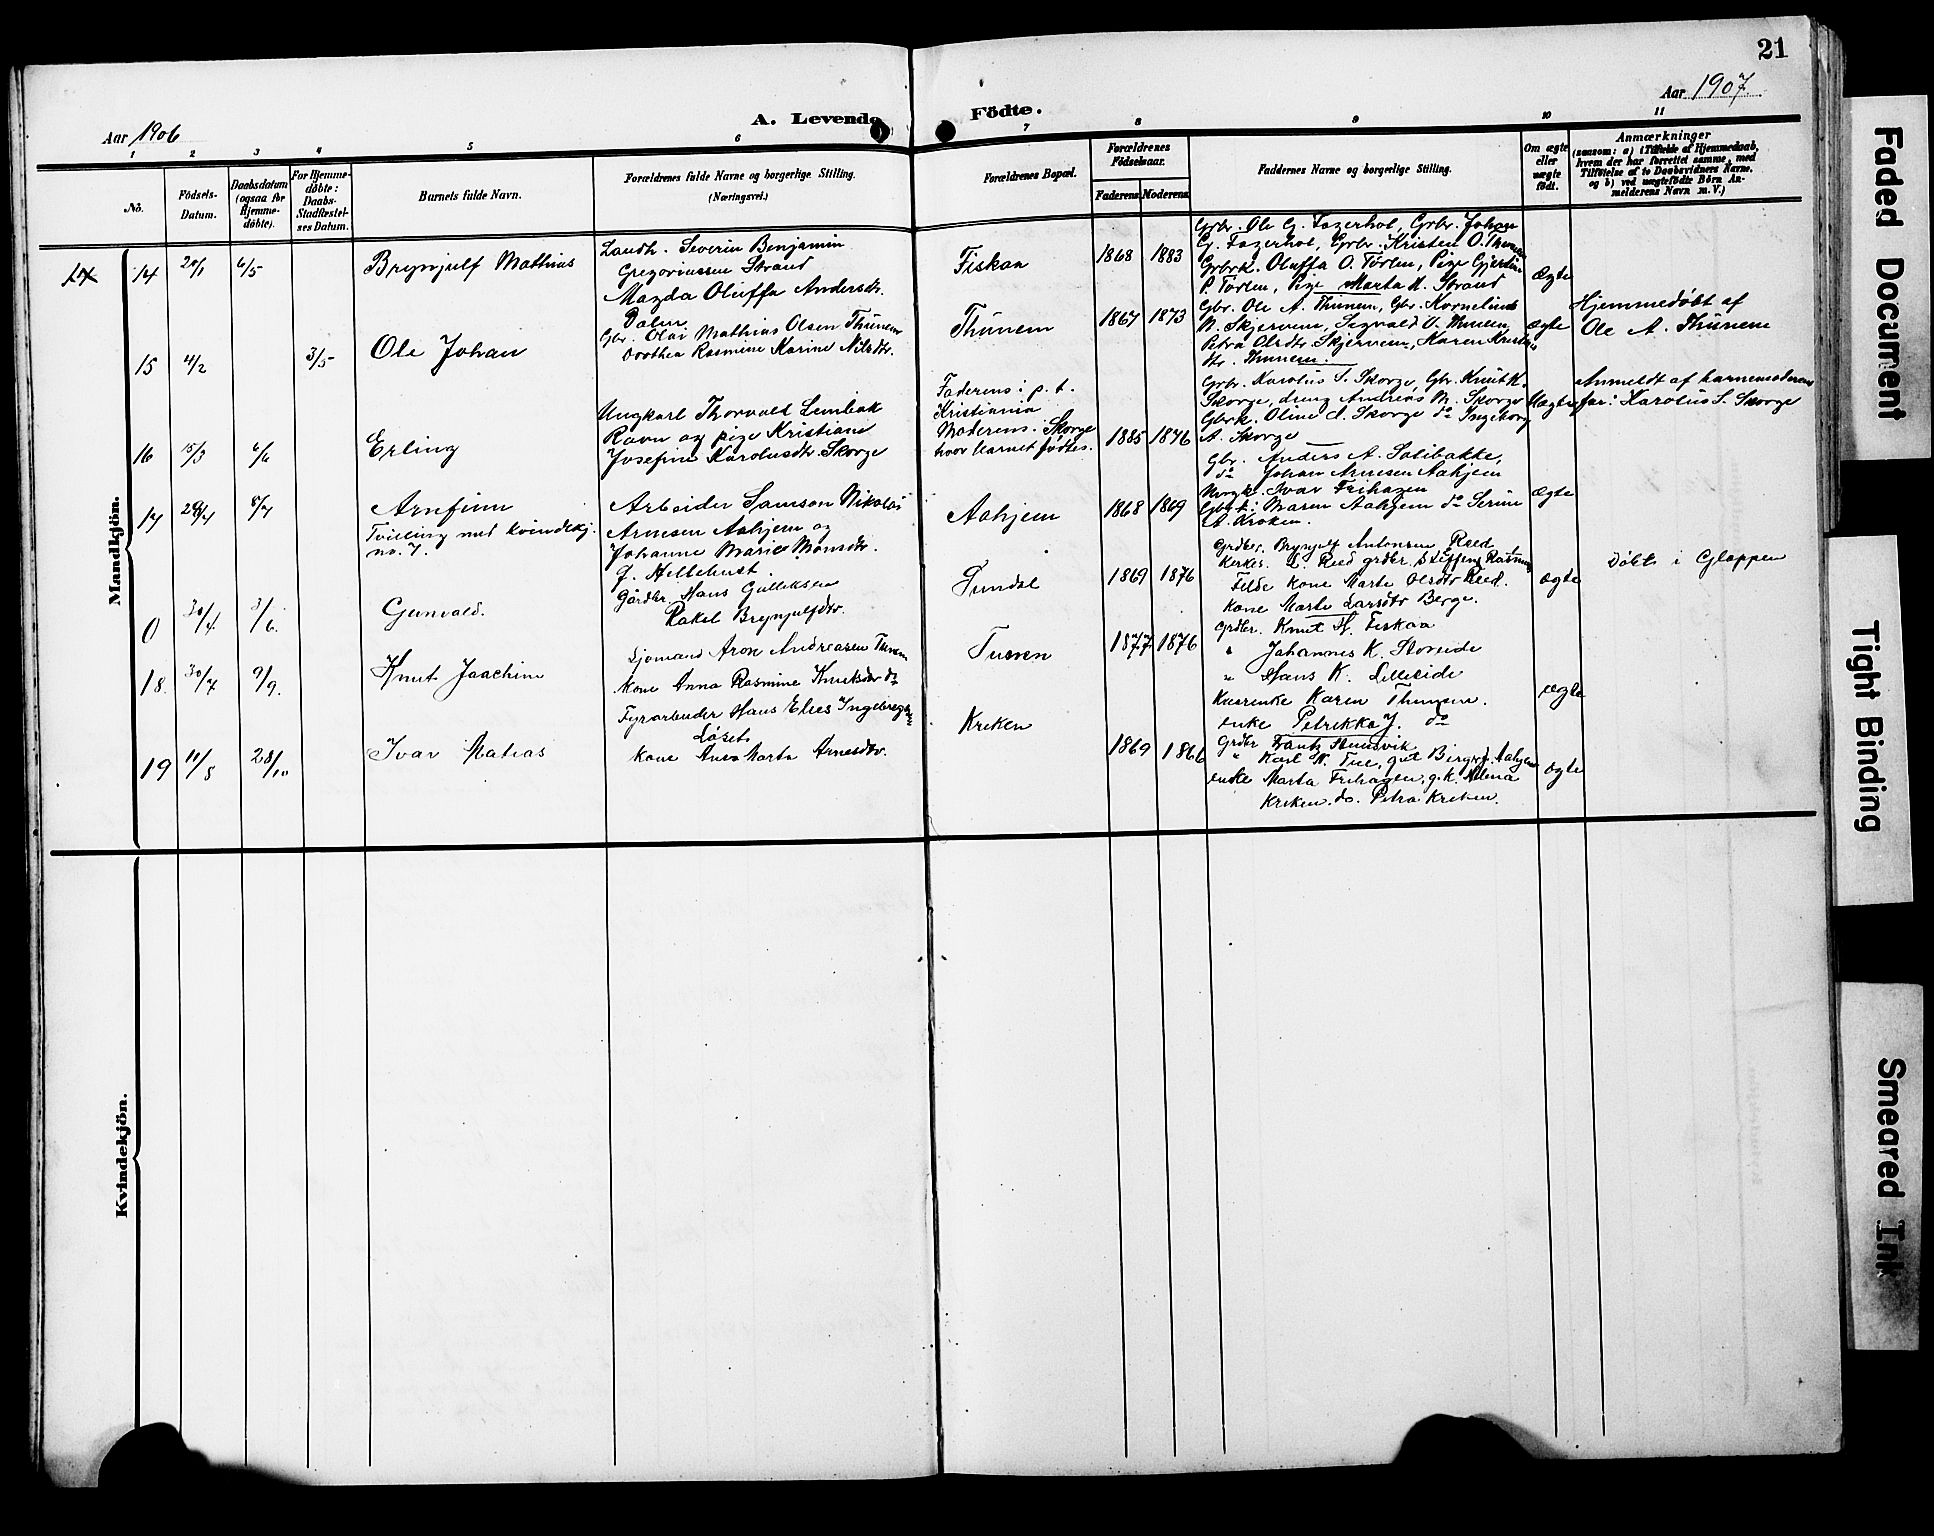 21
Aar 1906
A. Levende Födte.
Aar 1907.
1 2 3 4 5 6 7 8 9 10 11
No.
Födsels-Datum.
Daabsdatum (ogsaa for Hjemme-döbte).
For Hjemme-döbte: Daabs-Stadfæstel-ses Datum.
Barnets fulde Navn.
Forældrenes fulde Navne og borgerlige Stilling.
(Næringsvei.)
Forældrenes Bopæl.
Forældrenes Födselsaar.
Faderens Moderens
Faddernes Navne og borgerlige Stilling.
Om ægte eller uægte födt.
Anmærkninger
(saasom: a) i Tilfælde af Hjemmedaab,
hvem der har forrettet samme, med
Tilföielse af to Daabsvidners Navne,
og b) ved uægtefödte Börn An-
melderens Navn m. V.)
Mandkjön.
14 20/1 6/5
Brynjulf Mathias
Landh. Severin Benjamin
Gregoriussen Strand
Magda Oluffa Andersdr.
Dalen
Fiskaa
1868 1883
Grbr. Ole G. Fagerhol, Grbr. Johan
G. Fagerhol, Grbr. Kristen O. Thunem
Grbrk. Oluffa O. Törlen, Pige Gjertine
P. Törlen, Pige Marta M. Strand
Ægte
15 4/2 3/5
Ole Johan
Gbr. Olai Mathias Olsen Thunem
Dorthea Rasmine Karine Nilsdr.
Thunem
1867 1873
Gbr. Ole A. Thunem, Gbr. Kornelius
N. Skjervem, Sigvald O. Thunem,
Petra Olsdtr. Skjervem, Karen Kristens
dtr. Thunem.
ægte
Hjemmedöbt af
Ole A. Thunem
16 15/3 6/6
Erling
Ungkarl Thorvald Lembak
Ravn og pige Kristiane
Josefine Karolusdtr. Skorge
Faderens: p. t.
Kristiania
Moderens: Skorge
hvor barnet födtes.
1885 1876
Grbr. Karolus S. Skorge, Gbr. Knut K.
Skorge, dreng Andreas M. Skorge
Gbrk. Oline A. Skorge do Ingeborg
A. Skorge
Uægte
Anmeldt af barnemoderens
far: Karolus S. Skorge
17 29/4 8/7
Arnfinn
Tvilling med kvindekj.
no. 7.
Arbeider Samson Nikolai
Arnesen Aahjem og
Johanne Marie Monsdr.
f. Hellebust
Aahjem
1868 1869
Gbr. Anders A. Solibakke,
do Johan Arnesen Aahjem
Ungk. Ivar Frihagen
Gbrk: Maren Aahjem do Serine
A. Kroken.
ægte
0 30/4 3/6.
Gunvald.
Gårdbr. Hans Gulleksen
Rakel Brynjulfdtr.
Sundal
1869 1876
Grdbr. Brynjulf Antonsen Reed
Kirkes. L. Reed grdbr. Steffen Rasmus
Felde kone Marte Olsdtr Reed.
kone Marte Larsdtr Berge.
ægte
Döbt i Gloppen
18. 30/7 9/9.
Knut Joachim
Sjömand Aron Andreasen Tunem
kone Anna Rasmine Knutsdtr do
Tunem
1877 1876
Grdbr. Knut H. Fiskaa
" Johannes K. Storeide
" Hans K. Lilleeide
Kaarenke Karen Thunem.
enke Petrikka J. do
ægte
19 11/8 28/10
Ivar Matias
Fyrarbeider Hans Elias Ingebregtsen
Löset
kone Ane Marta Arnesdtr.
Kroken
1869 1866
" Karl N. Tue, gut Birger J. Aahjem
enke Marta Frihagen, g.k. Alma
Kroken. do. Petra Kroken.
ægte
Kvindekjön.
Faded Document
Tight Binding
Smeared Ink